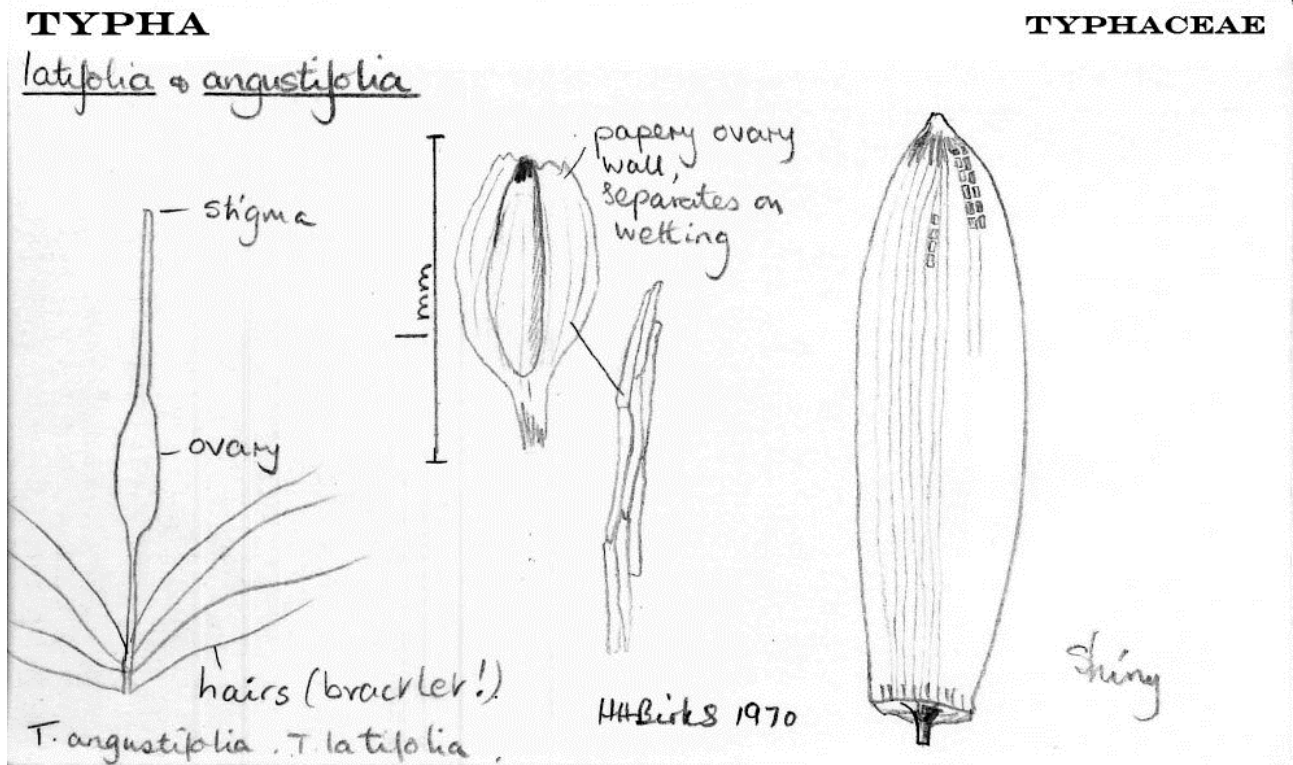 TYPHA
TYPHACEAE
latifolia & angustifolia
stigma
ovary
hairs (bractlet!)
T. angustifolia . T. latifolia .
1mm
papery ovary
wall,
separates on
wetting
HHBirks 1970
Shiny